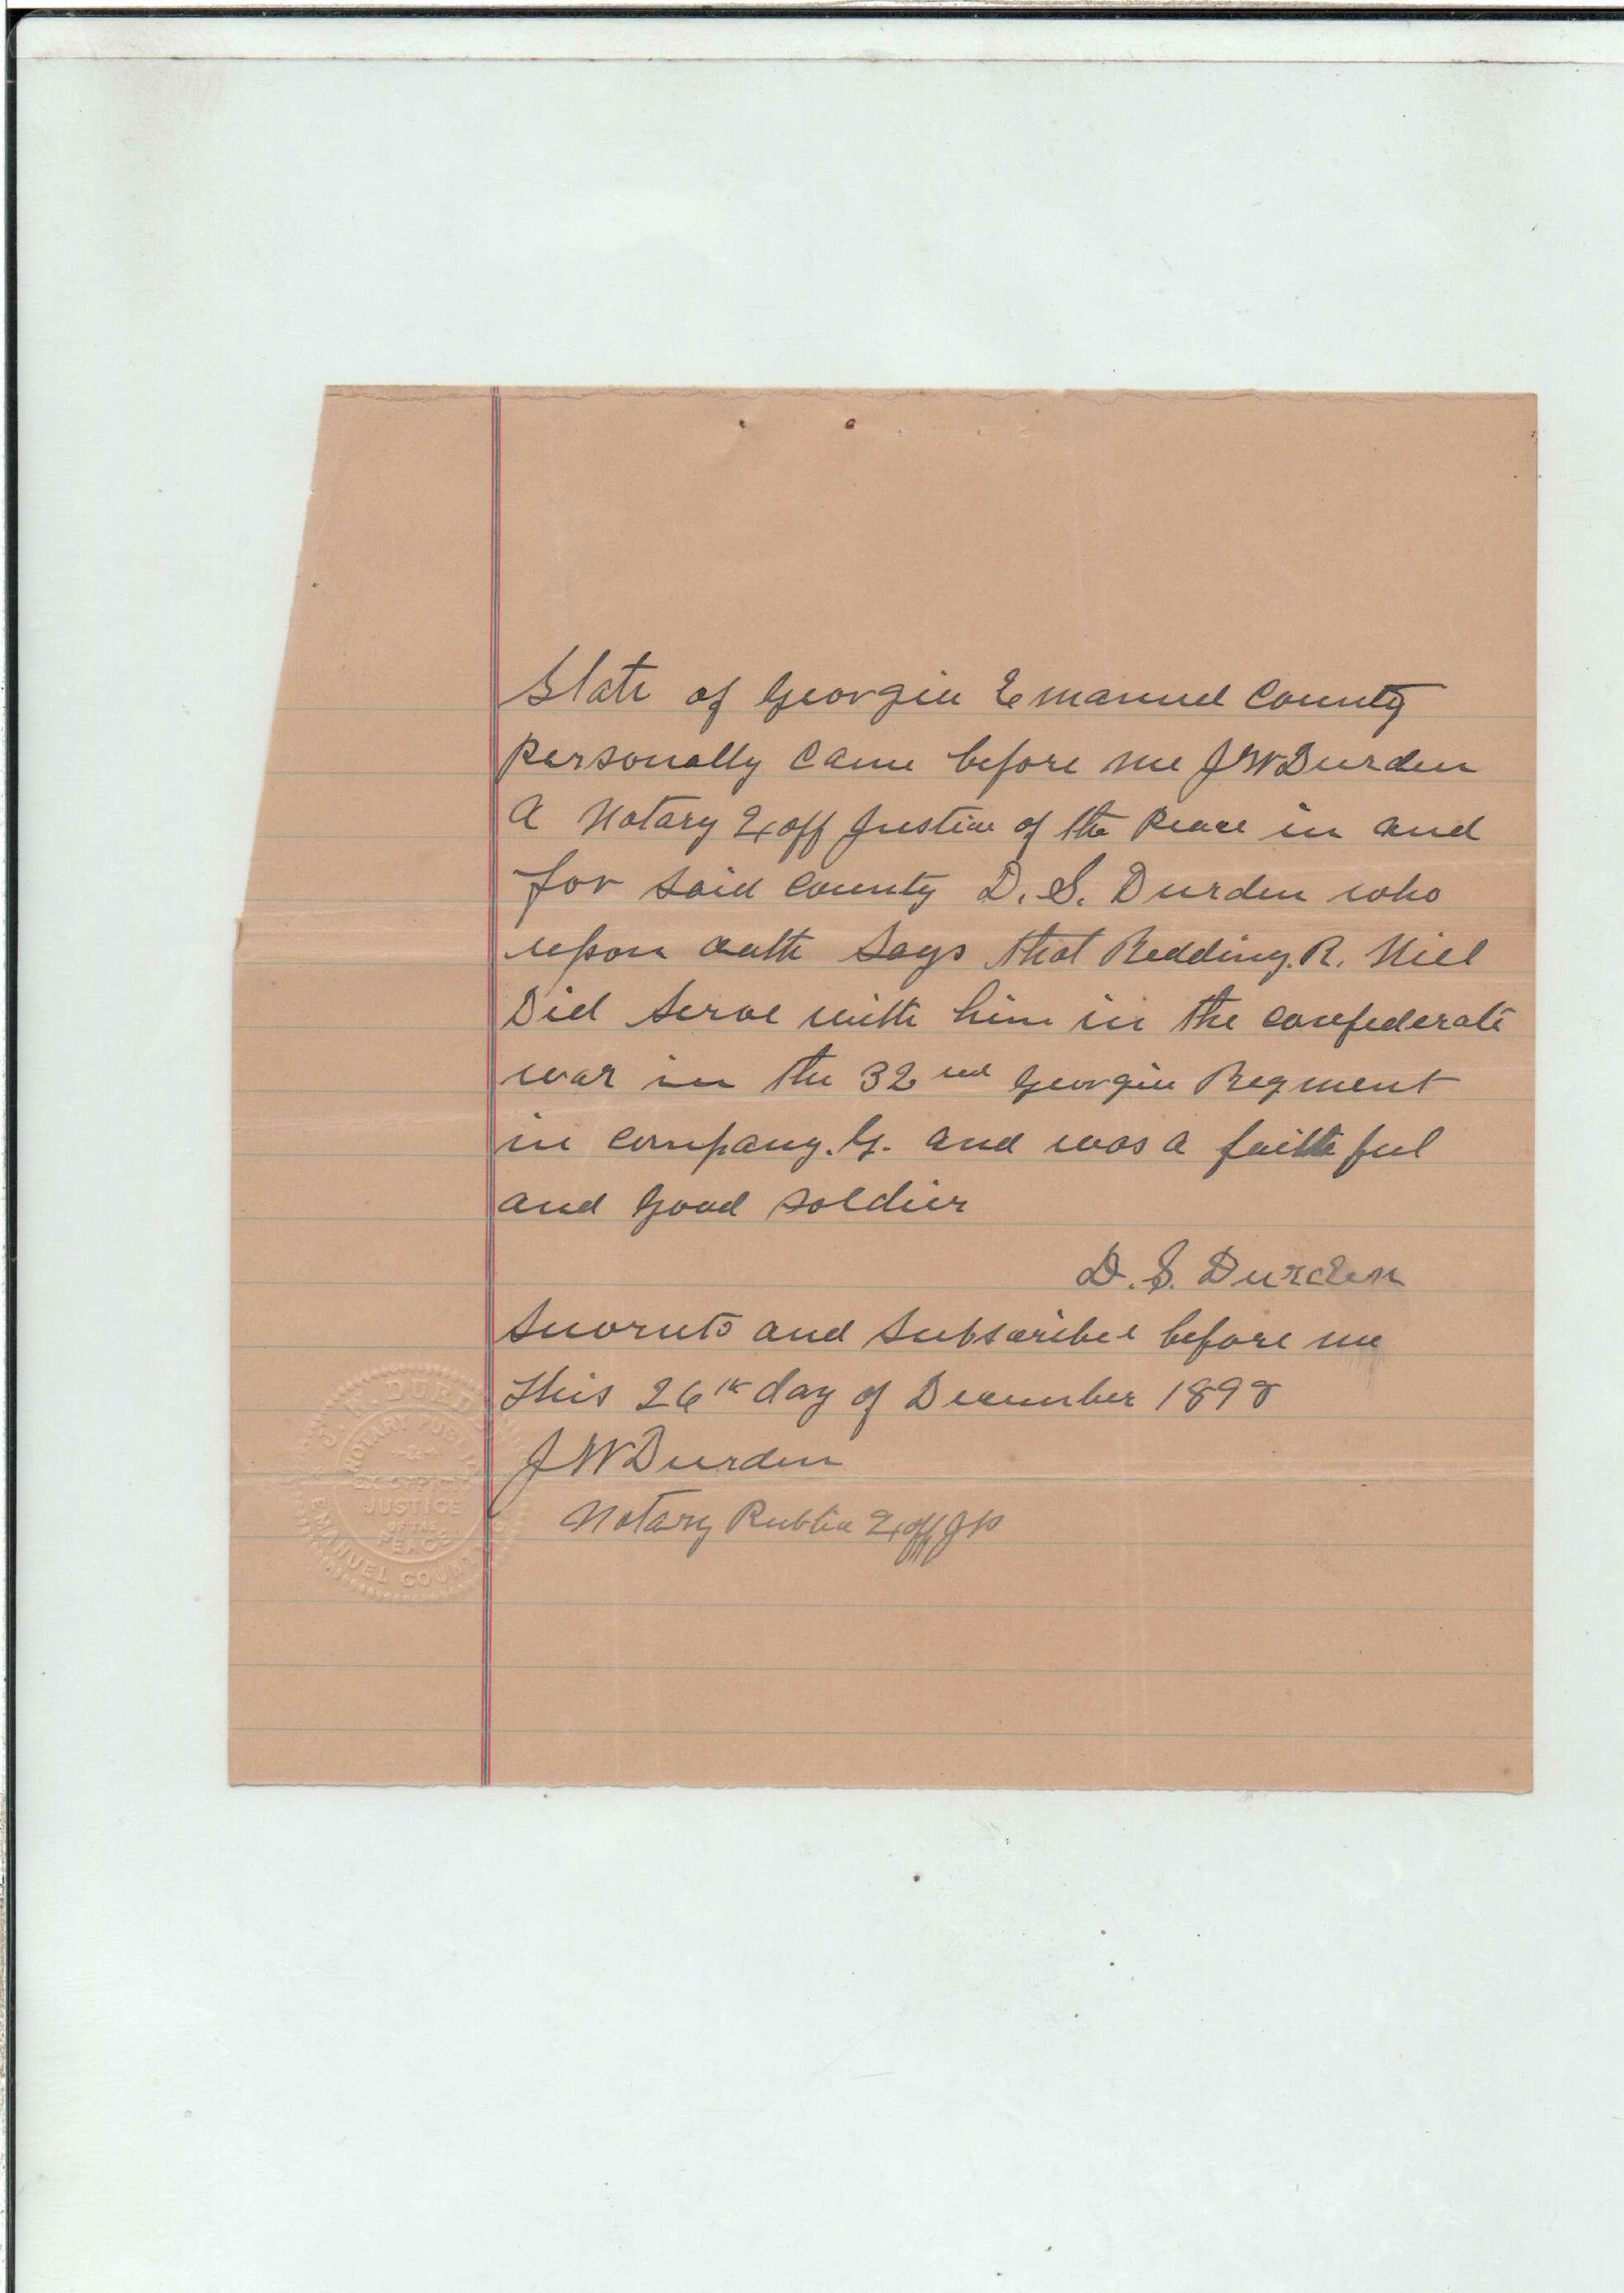 State of Georgia Emanuel County
Personally Came before me J W Durden
A Notary Exoff Justice of the Peace in and
for said County D. S. Durden who
upon oath Says that Redding. R. Niel
Did Serve with him in the confederate
war in the 32nd Georgia Regment
in Company. G. and was a faithful
and good soldier
D. S. Durden
Swornto and Subscribed before me
This 26th day of December 1898
J W Durden
Notary Public Exoff J P
J. W. DURDEN
NOTARY PUBLIC
&
EX OFFICIO
JUSTICE
OF THE
PEACE
EMANUEL COUNTY